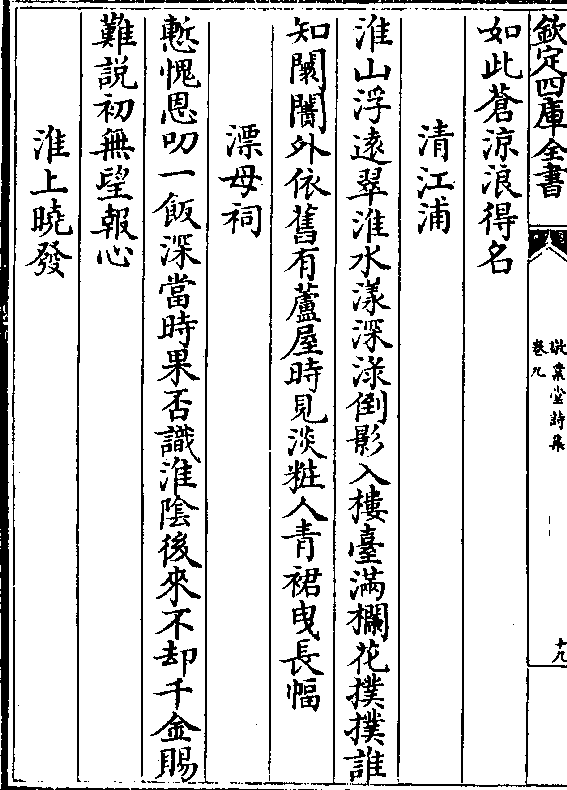 欽定四庫全書
敬業堂詩集
卷九
十九
如此蒼涼浪得名
清江浦
淮山浮遠翠淮水漾深渌倒影入樓臺滿欄花撲撲誰
知闤闠外依舊有蘆屋時見淡粧人青裙曳長幅
漂母祠
慙愧恩叨一飯深當時果否識淮陰後來不却千金賜
難説初無望報心
淮上曉發